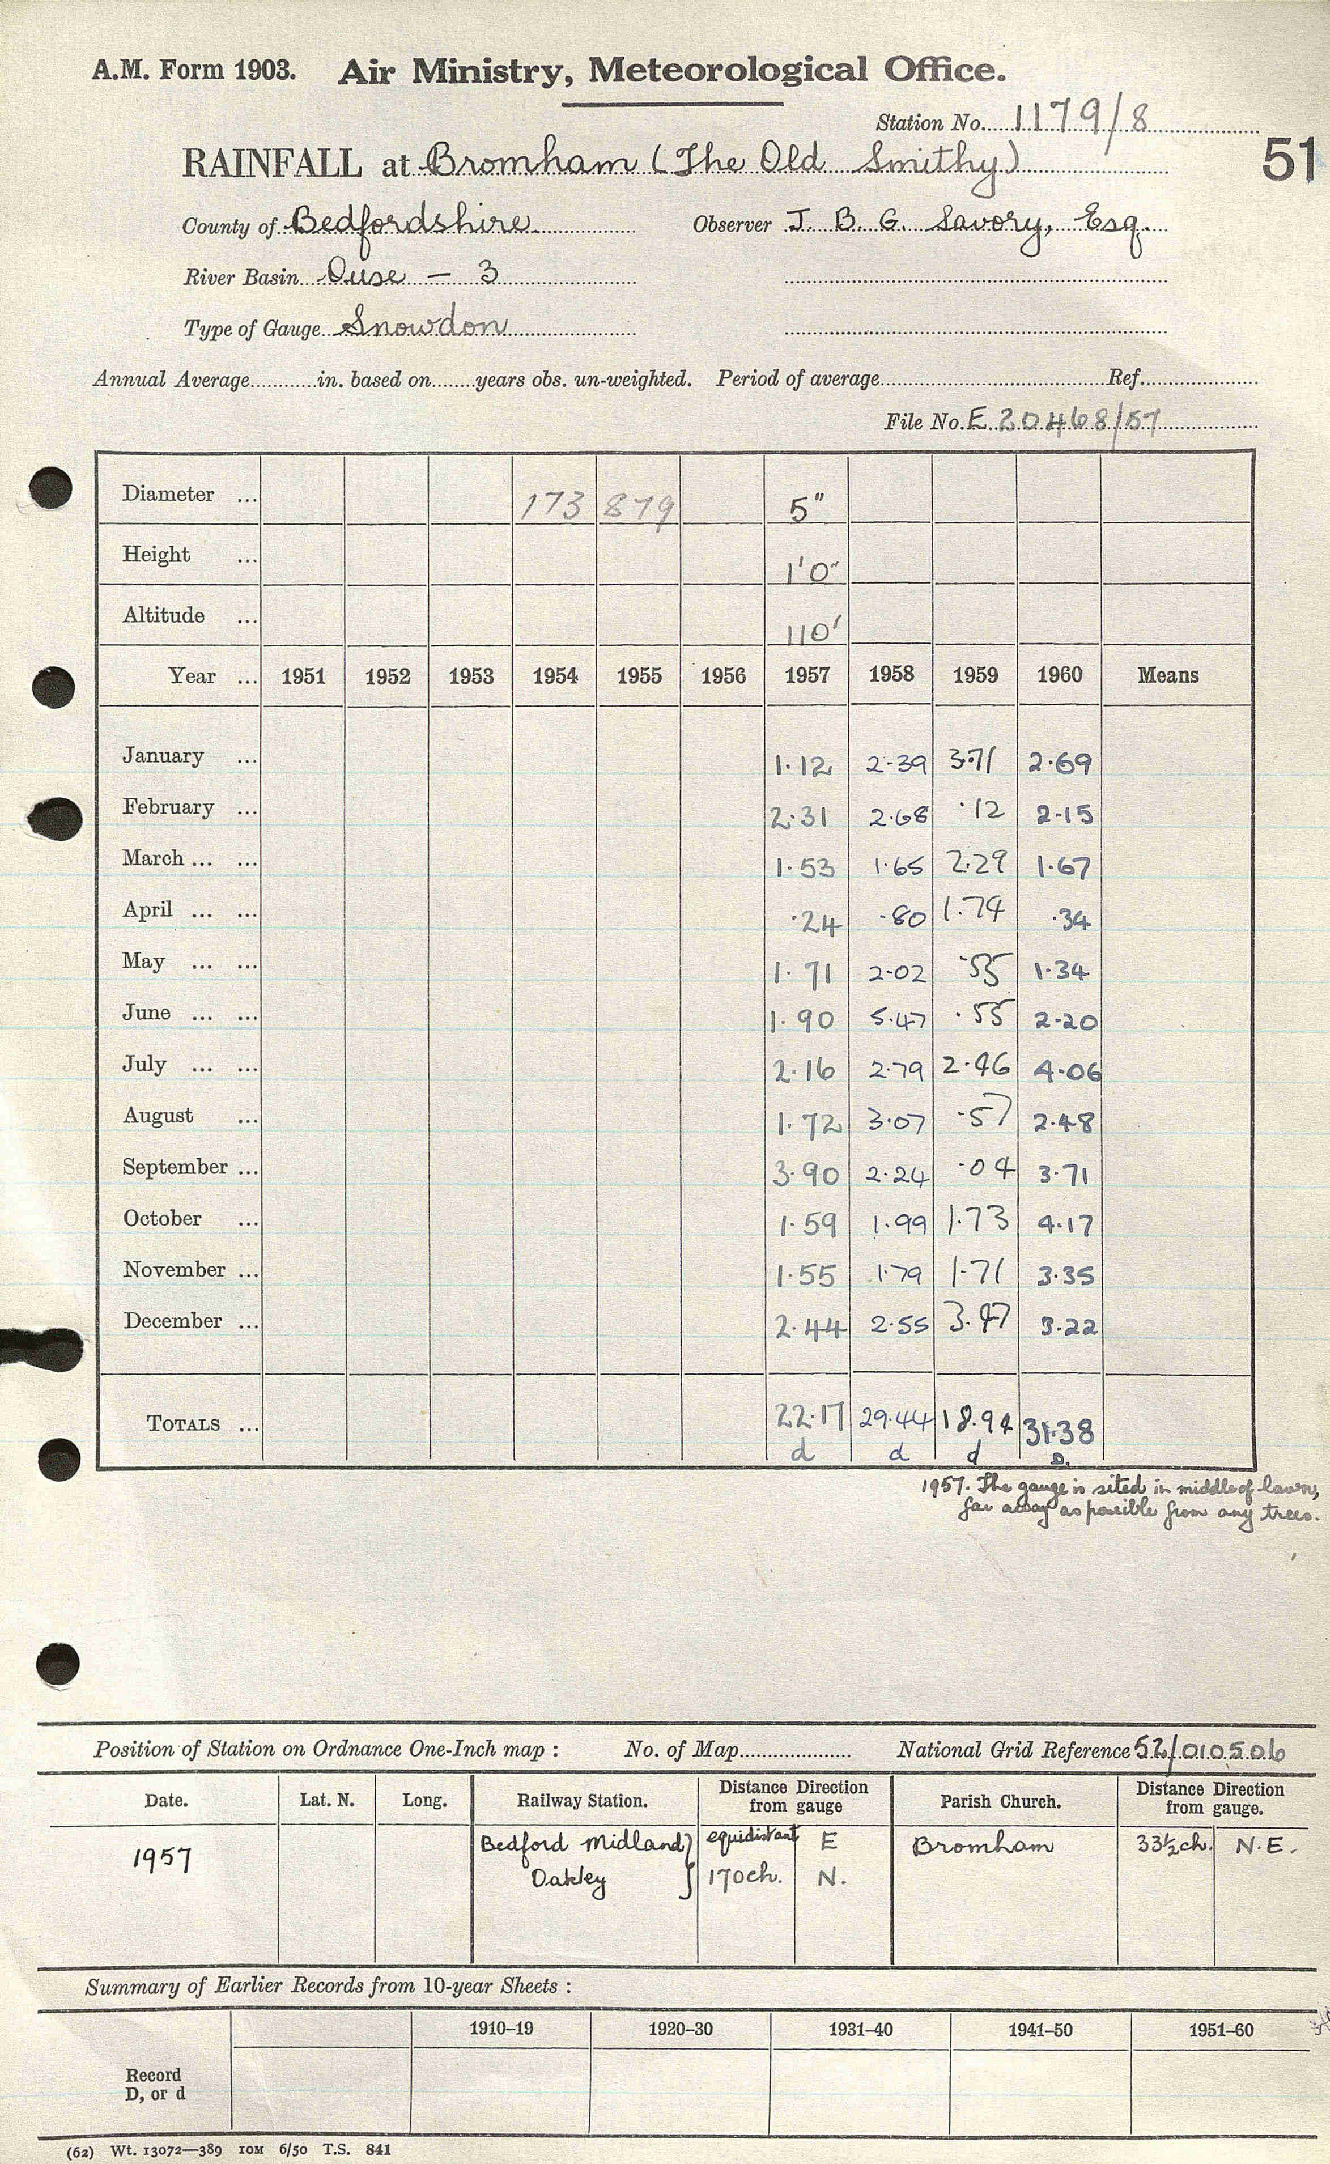 A.M. Form 1903. Air Ministry, Meteorological Office.
Station No. 1179/8
RAINFALL at Bromham (The Old Smithy)
51
County of Bedfordshire Observer J. B. G. Savory, Esq.
River Basin Ouse - 3
Type of Gauge Snowdon
Annual Average............in. based on.......years obs. un-weighted. Period of average............Ref............
File No. E 20468/57
Diameter ... 173 879 5"
Height ... 1'0"
Altitude ... 110'
Year ... 1951 1952 1953 1954 1955 1956 1957 1958 1959 1960 Means
January ... 1.12 2.39 3.71 2.69
February ... 2.31 2.68 .12 2.15
March ... ... 1.53 1.65 2.29 1.67
April ... ... .24 .80 1.74 .34
May ... ... 1.71 2.02 .55 1.34
June ... ... 1.90 5.47 .55 2.20
July ... ... 2.16 2.79 2.46 4.06
August ... 1.72 3.07 .57 2.48
September ... 3.90 2.24 .04 3.71
October ... 1.59 1.99 1.73 4.17
November ... 1.55 1.79 1.71 3.35
December ... 2.44 2.55 3.47 3.22
TOTALS ... 22.17 29.44 18.94 31.38
d d d D.
1957. The gauge is sited in middle of lawn,
far away as possible from any trees.
Position of Station on Ordnance One-Inch map : No. of Map.................... National Grid Reference 52/010506
Date. Lat. N. Long. Railway Station. Distance Direction from gauge Parish Church. Distance Direction from gauge.
1957 Bedford Midland } equidistant E Bromham 33½ch. N.E.
Oakley } 170ch. N.
Summary of Earlier Records from 10-year Sheets :
1910–19 1920–30 1931–40 1941–50 1951–60
Record
D, or d
(62) Wt. 13072—389 10M 6/50 T.S. 841